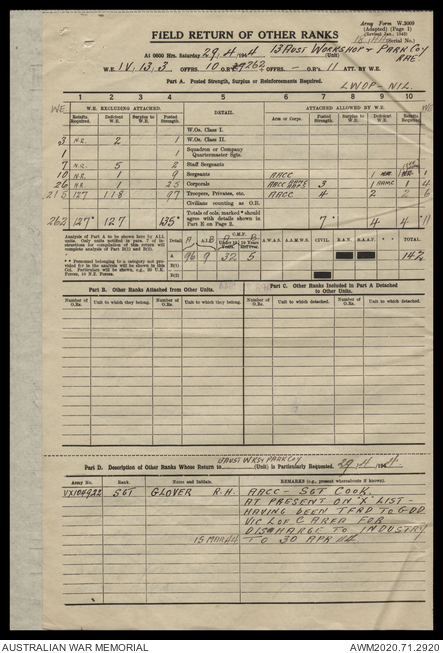 Army Form W.3009
(Adapted) (Page 1)
(Revised Jan., 1943)
(Serial No.)
FIELD RETURN OF OTHER RANKS
At 0600 Hrs. Saturday 29/4/44 13 Aust Workshop & Park Coy (Unit)
AEME
W.E. IV/13/3 OFFRS. 10 O.R. 262 OFFRS. - O.R. 11 ATT. BY W.E.
Part A. Posted Strength, Surplus or Reinforcements Required.
LWOP - NIL.
1 2 3 4 5 6 7 8 9 10
WE W.E. EXCLUDING ATTACHED. DETAIL ATTACHED ALLOWED BY W.E. WE
Reinfts. Required. Deficient W.E. Surplus to W.E. Posted Strength. Arm or Corps. Posted Strength. Surplus to W.E. Deficient W.E. Reinfts. Required.
W.Os. Class I.
3 N.R. 2 1 W.Os. Class II.
1 1 Squadron or Company Quartermaster Sgts.
7 N.R. 5 2 Staff Sergeants
10 N.R. 1 9 Sergeants AACC 1 1
26 N.R. 1 25 Corporals AACC 3 1 AAMC 1 4
215 127 118 97 Troopers, Privates, etc. AACC 4 2 2 6
Civilians counting as O.R.
262 127* 127 135* Totals of cols. marked * should agree with details shown in Part E on Page 2. 7* 4 4* 11
Analysis of Part A to be shown here by ALL units. Only units notified in para. 7 of instructions for compilation of this return will complete analysis of Part B(1) and B(2).
* * Personnel belonging to a category not provided for in the analysis will be shown in this Col. Particulars will be shown, e.g. 20 U.K. Forces, 10 N.Z. Forces.
Detail A A.I.F. C.M.F. A.W.A.S. A.A.M.W.S. CIVIL. R.A.N. R.A.A.F. * * TOTAL
A 96 9 32 5 142
B(1)
B(2)
Part B. Other Ranks Attached from Other Units.
Part C. Other Ranks Included in Part A Detached to Other Units.
Number of O.Rs. Unit to which they belong. Number of O.Rs. Unit to which they belong. Number of O.Rs. Unit to which detached. Number of O.Rs. Unit to which detached.
Part D. Description of Other Ranks Whose Return to 13 Aust Wksp & Park Coy (Unit) is Particularly Requested. 29/4/1944
Army No. Rank. Name and Initials. REMARKS (e.g., present whereabouts if known).
VX104922 SGT GLOVER R.H. AACC - SGT COOK.
AT PRESENT ON 'X' LIST -
HAVING BEEN TFRD TO GDD
VIC L OF C AREA FOR
DISCHARGE TO INDUSTRY
15 MAR 44 TO 30 APR 44
AUSTRALIAN WAR MEMORIAL
AWM2020.71.2920